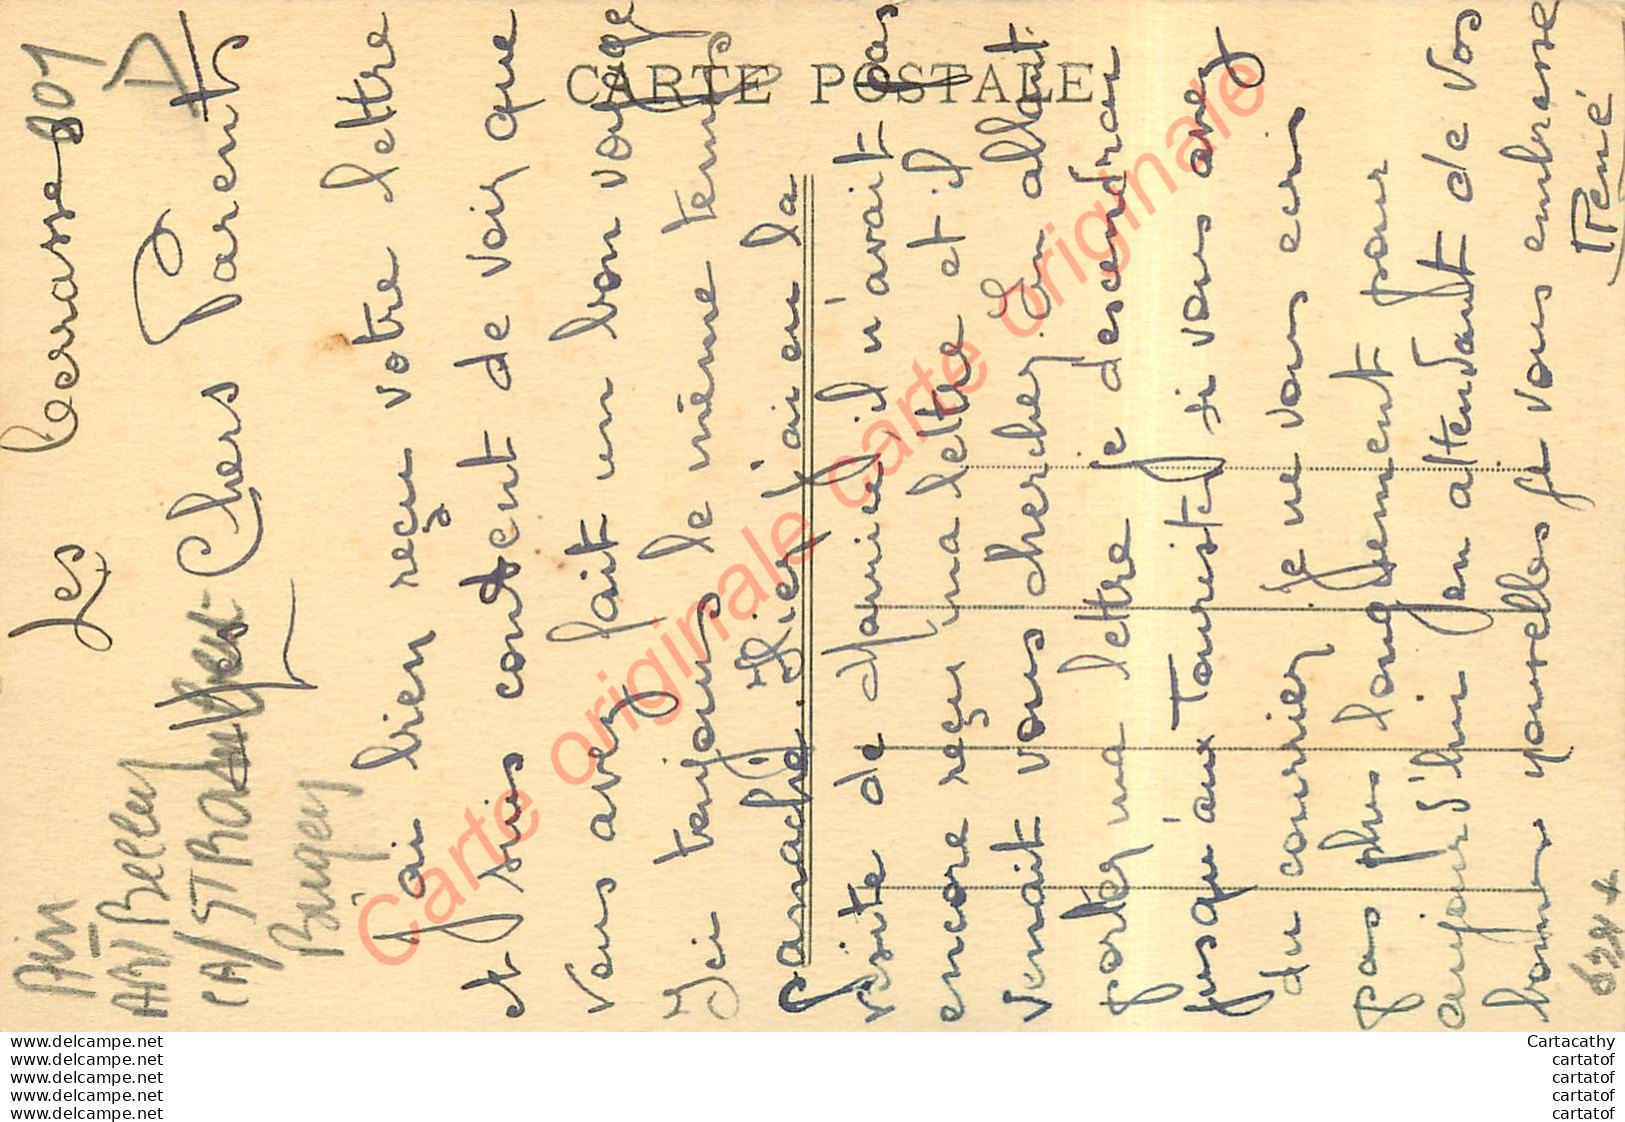 Les Terrasses 801
Chers Parents
J'ai bien reçu votre lettre
et suis content de voir que
vous avez fait un bon voyage
Ici toujours le même temps
panaché. Hier j'ai eu la
visite de Daniel, il n'avait pas
encore reçu ma lettre et il
venait vous chercher. En allant
porter ma lettre je descendrai
jusqu'aux Touristes si vous avez
du courrier. Je ne vous écris
pas plus longuement pour
aujourd'hui. En attendant de vos
bonnes nouvelles je vous embrasse
René
Ain
Art Belley
CA/STRA
Bugey
CARTE POSTALE
Carte originale carte originale
www.delcampe.net
www.delcampe.net
www.delcampe.net
www.delcampe.net
www.delcampe.net
Cartacathy
cartatof
cartatof
cartatof
cartatof